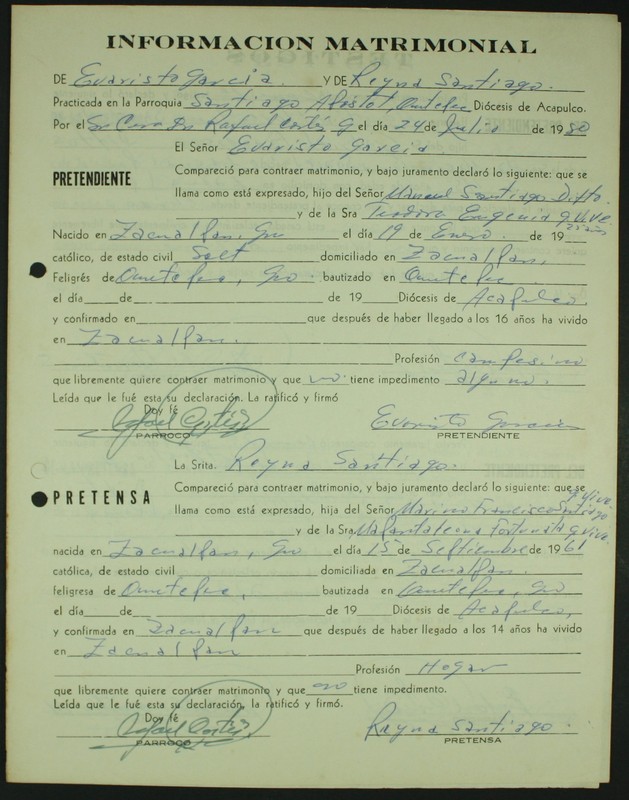 INFORMACION MATRIMONIAL
DE Evaristo Garcia. Y DE Reyna Santiago.
Practicada en la Parroquia Santiago Apistol, Ometepec Diócesis de Acapulco.
Por el Sr Cura Dn Rafael Cortés G. el día 24 de Julio de 1980
El Señor Evaristo Garcia
PRETENDIENTE
Compareció para contraer matrimonio, y bajo juramento declaró lo siguiente: que se
llama como está expresado, hijo del Señor Manuel Santiago Difto.
y de la Sra Teodora Eugenia q vive.
Nacido en Zacualpan, Gro el día 19 de Enero. de 19 21 años
católico, de estado civil Solt domiciliado en Zacualpan,
Feligrés de Ometepec, Gro. bautizado en Ometepec
el día de de 19 Diócesis de Acapulco,
y confirmado en que después de haber llegado a los 16 años ha vivido
en Zacualpan.
Profesión campesino
que libremente quiere contraer matrimonio y que no tiene impedimento alguno.
Leída que le fué esta su declaración. La ratificó y firmó
Doy fé
Rafael Cortés Evaristo Garcia
PARROCO PRETENDIENTE
La Srita. Reyna Santiago.
PRETENSA
Compareció para contraer matrimonio, y bajo juramento declaró lo siguiente: que se
llama como está expresado, hija del Señor Marino Francisco Santiago q vive.
y de la Sra. Ma Pantaleona Fortunata q vive.
nacida en Zacualpan, Gro el día 15 de Septiembre de 1961
católica, de estado civil domiciliada en Zacualpan.
feligresa de Ometepec, bautizada en Ometepec, Gro
el día de de 19 Diócesis de Acapulco,
y confirmada en Zacualpan que después de haber llegado a los 14 años ha vivido
en Zacualpan
Profesión Hogar
que libremente quiere contraer matrimonio y que no tiene impedimento.
Leída que le fué esta su declaración, la ratificó y firmó.
Doy fé
Rafael Cortés Reyna Santiago.
PARROCO PRETENSA